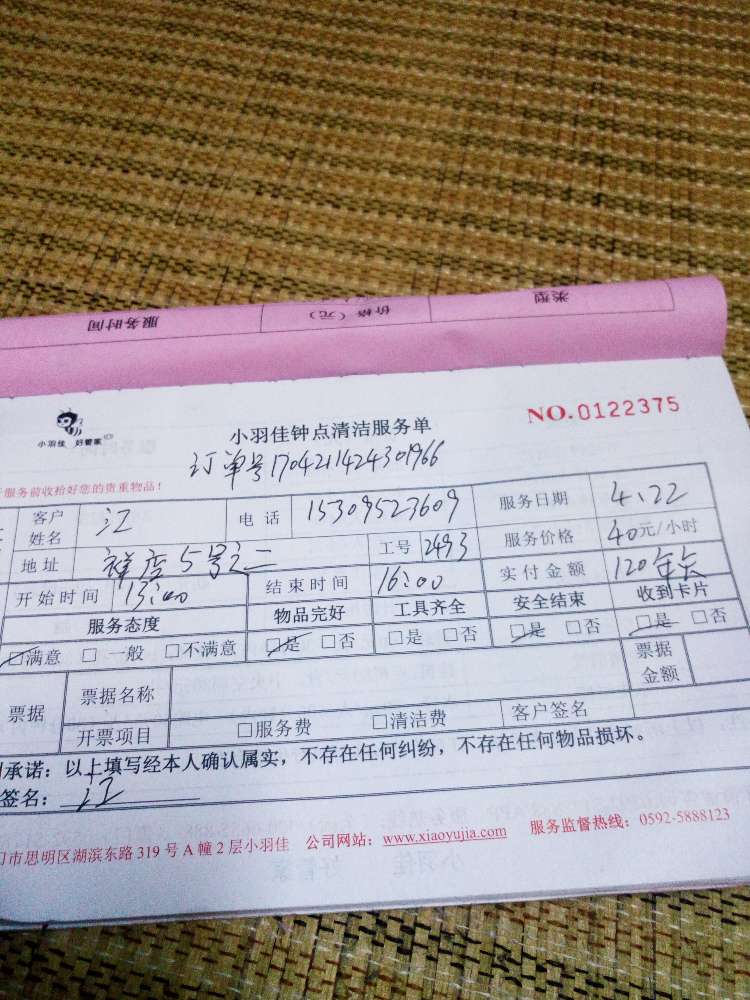 类型
价格（元）
服务时间
小羽佳 好管家
小羽佳钟点清洁服务单
NO.0122375
订单号1704211424301966
服务前收拾好您的贵重物品！
客户姓名 江 电话 15309523609 服务日期 4.22
地址 祥店5号之二 工号 2493 服务价格 40元/小时
开始时间 13:00 结束时间 16:00 实付金额 120
服务态度 物品完好 工具齐全 安全结束 收到卡片
☑满意 □一般 □不满意 ☑是 □否 □是 □否 ☑是 □否 ☑是 □否
票据 票据名称 票据金额
开票项目 □服务费 □清洁费 客户签名
承诺：以上填写经本人确认属实，不存在任何纠纷，不存在任何物品损坏。
签名：江
门市思明区湖滨东路319号A幢2层小羽佳 公司网站：www.xiaoyujia.com 服务监督热线：0592-5888123